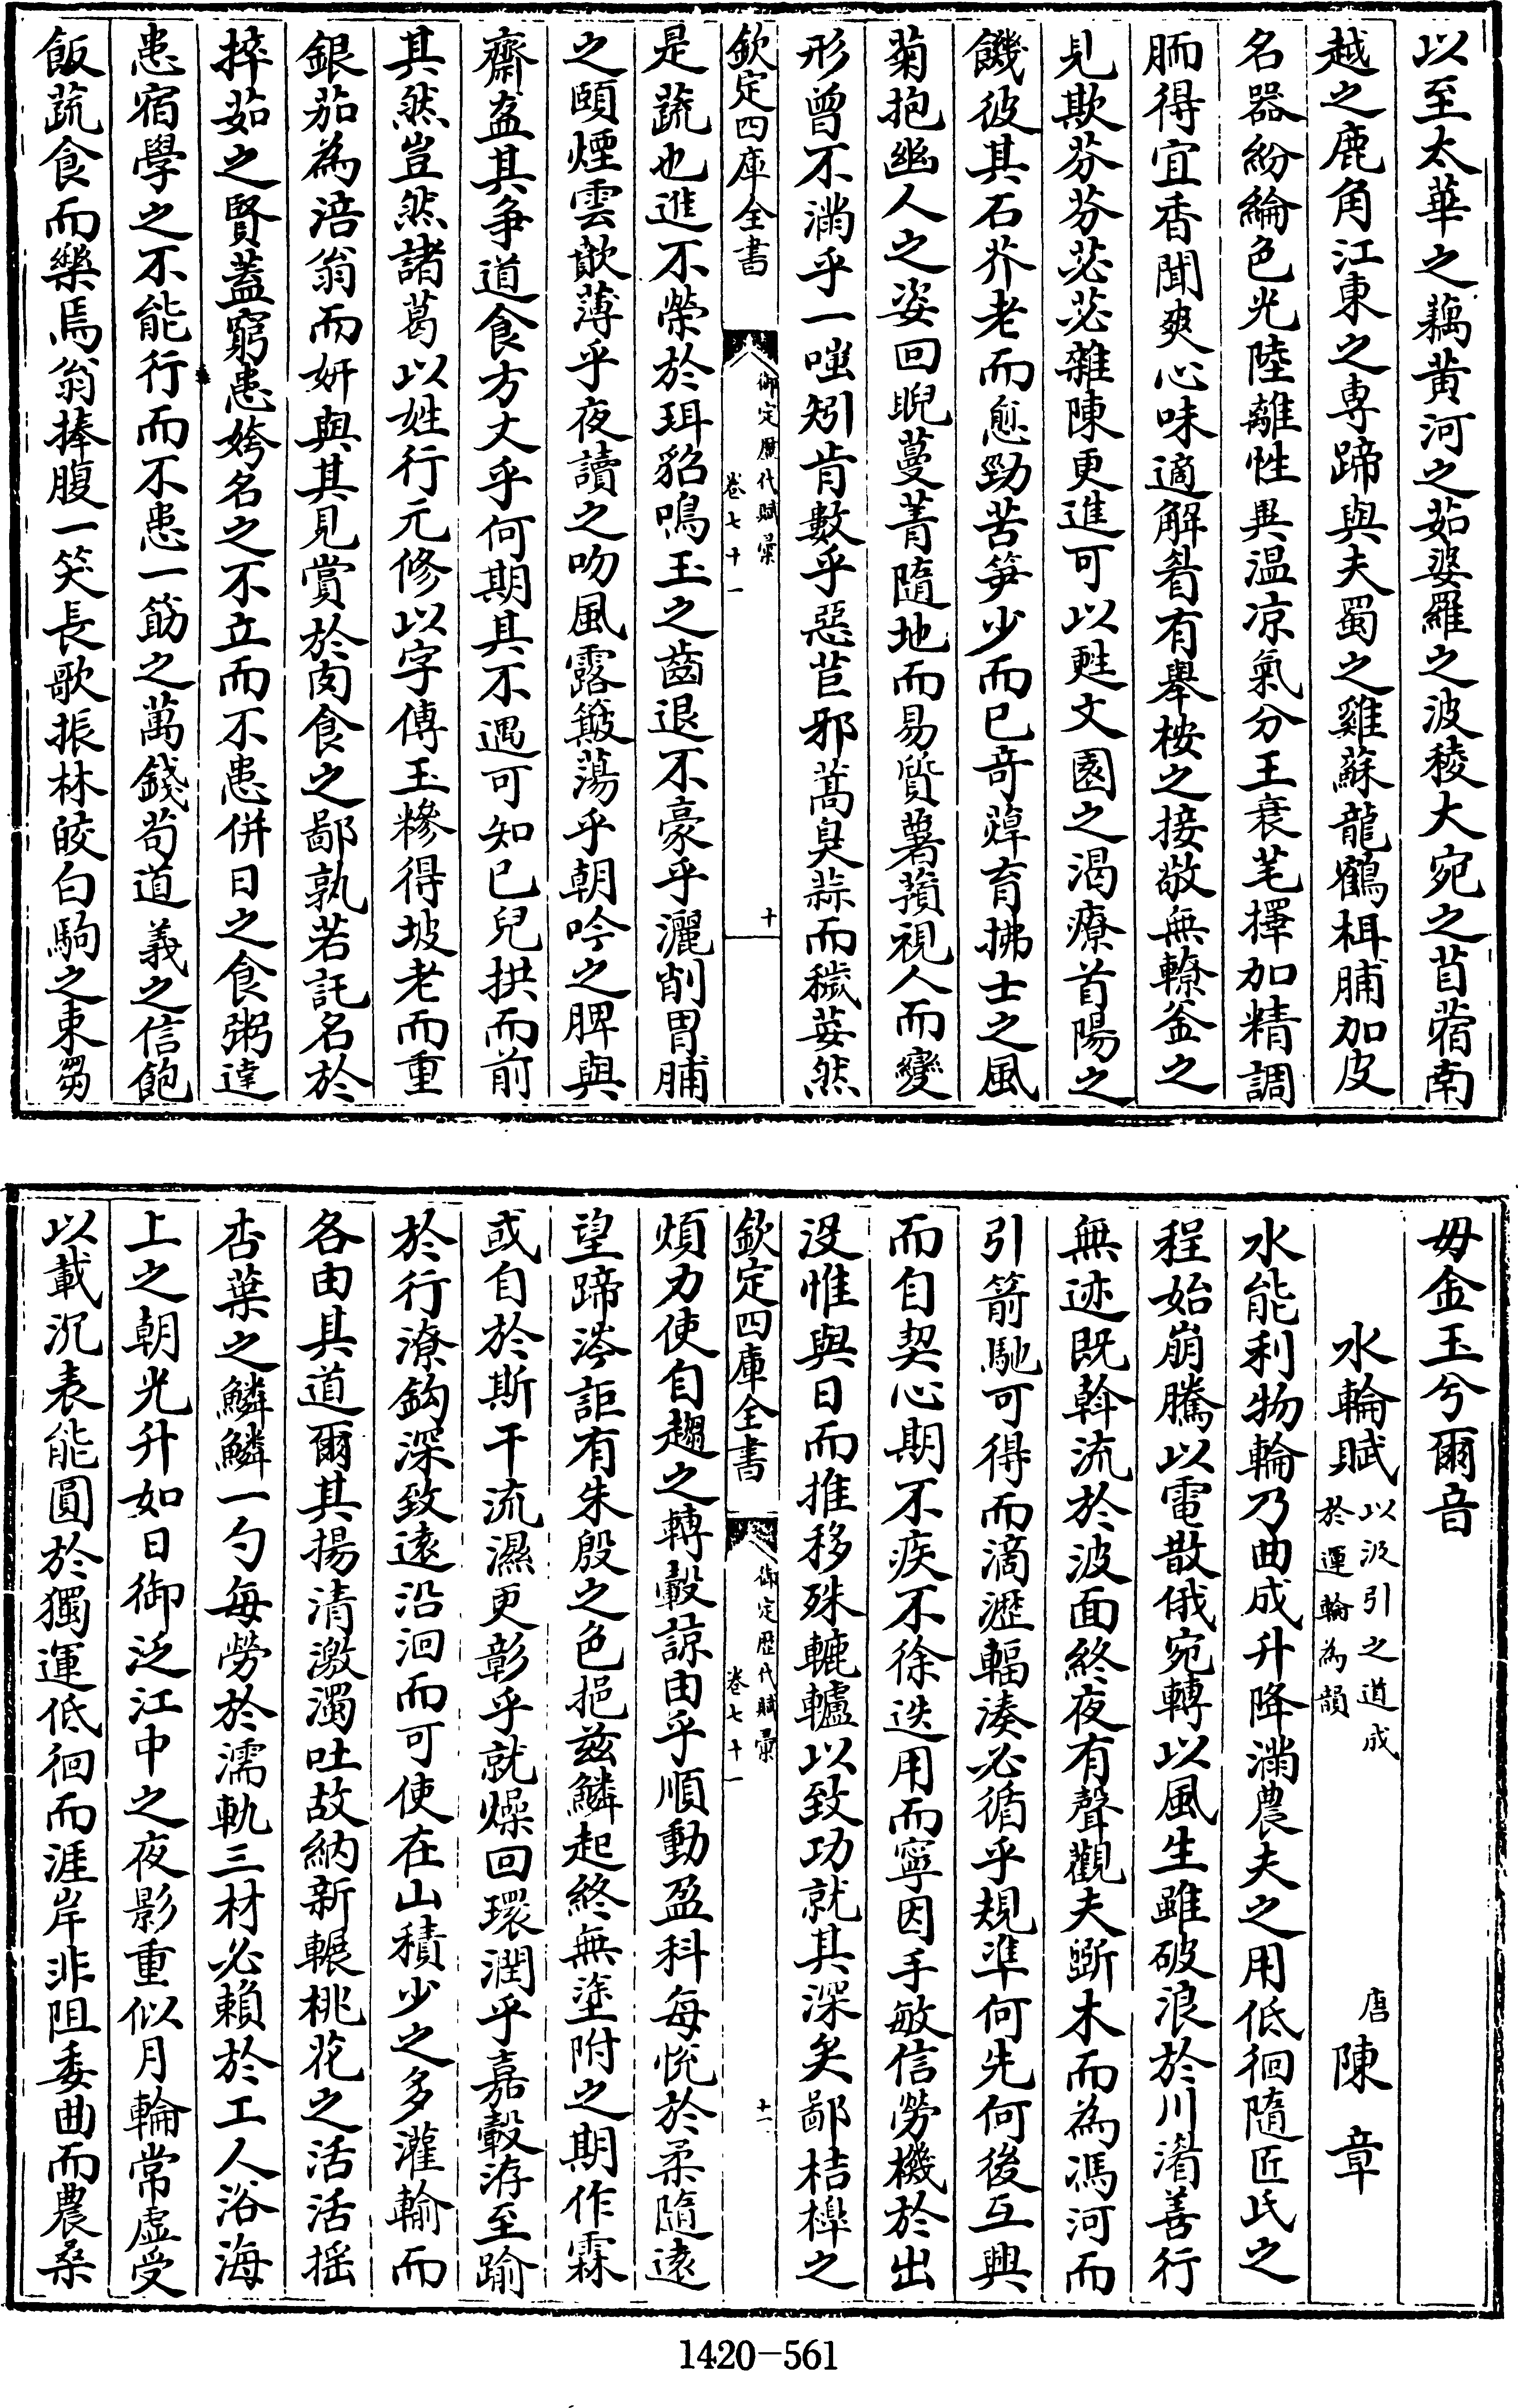 以至太華之藕黄河之茹婆羅之波稜大宛之苜蓿南
越之鹿角江東之専蹄與夫蜀之雞蘇龍鶴楫脯加皮
名器紛綸色光陸離性異温凉氣分王衰芼擇加精調
胹得宜香聞爽心味適解眷有舉桉之接敬無轑釜之
見欺芬芬苾苾雜陳更進可以甦文園之渴療首陽之
饑彼其石芥老而愈勁苦笋少而已竒焯育拂士之風
菊抱幽人之姿回睨蔓菁隨地而易質薯蕷視人而變
形曾不滿乎一嗤矧肯數乎惡苣邪蒿臭蒜而穢荽然
欽定四庫全書
御定歴代賦彙
卷七十一
十
是蔬也進不榮於珥貂鳴玉之齒退不豪乎灑削胃脯
之頤煙雲歕薄乎夜讀之吻風露簸蕩乎朝吟之脾與
齋盍其争道食方丈乎何期其不遇可知已兒拱而前
其然豈然諸葛以姓行元修以字傳玉糝得坡老而重
銀茄為涪翁而妍與其見賞於肉食之鄙孰若託名於
捽茹之賢蓋窮患姱名之不立而不患併日之食粥達
患宿學之不能行而不患一筯之萬錢苟道義之信飽
飯蔬食而樂焉翁捧腹一笑長歌振林皎白駒之束芻
毋金玉兮爾音
水輪賦 以汲引之道成於運輪為韻
唐陳章
水能利物輪乃曲成升降滿農夫之用低徊隨匠氏之
程始崩騰以電散俄宛轉以風生雖破浪於川湄善行
無迹既斡流於波面終夜有聲觀夫斵木而為馮河而
引箭馳可得而滴瀝輻湊必循乎規凖何先何後互興
而自契心期不疾不徐迭用而寧因手敏信勞機於出
没惟與日而推移殊轆轤以致功就其深矣鄙桔槹之
欽定四庫全書
御定歴代賦彙
卷七十一
十一
煩力使自趨之轉轂諒由乎順動盈科每恱於柔隨逺
望蹄涔詎有朱殷之色挹兹鱗起終無塗附之期作霖
或自於斯干流濕更彰乎就燥回環潤乎嘉轂洊至踰
於行潦鈎深致逺沿洄而可使在山積少之多灌輸而
各由其道爾其揚清激濁吐故納新輾桃花之活活揺
杏葉之鱗鱗一勺每勞於濡軌三材必賴於工人浴海
上之朝光升如日御泛江中之夜影重似月輪常虚受
以載沉表能圓於獨運低徊而涯岸非阻委曲而農桑
1420-561